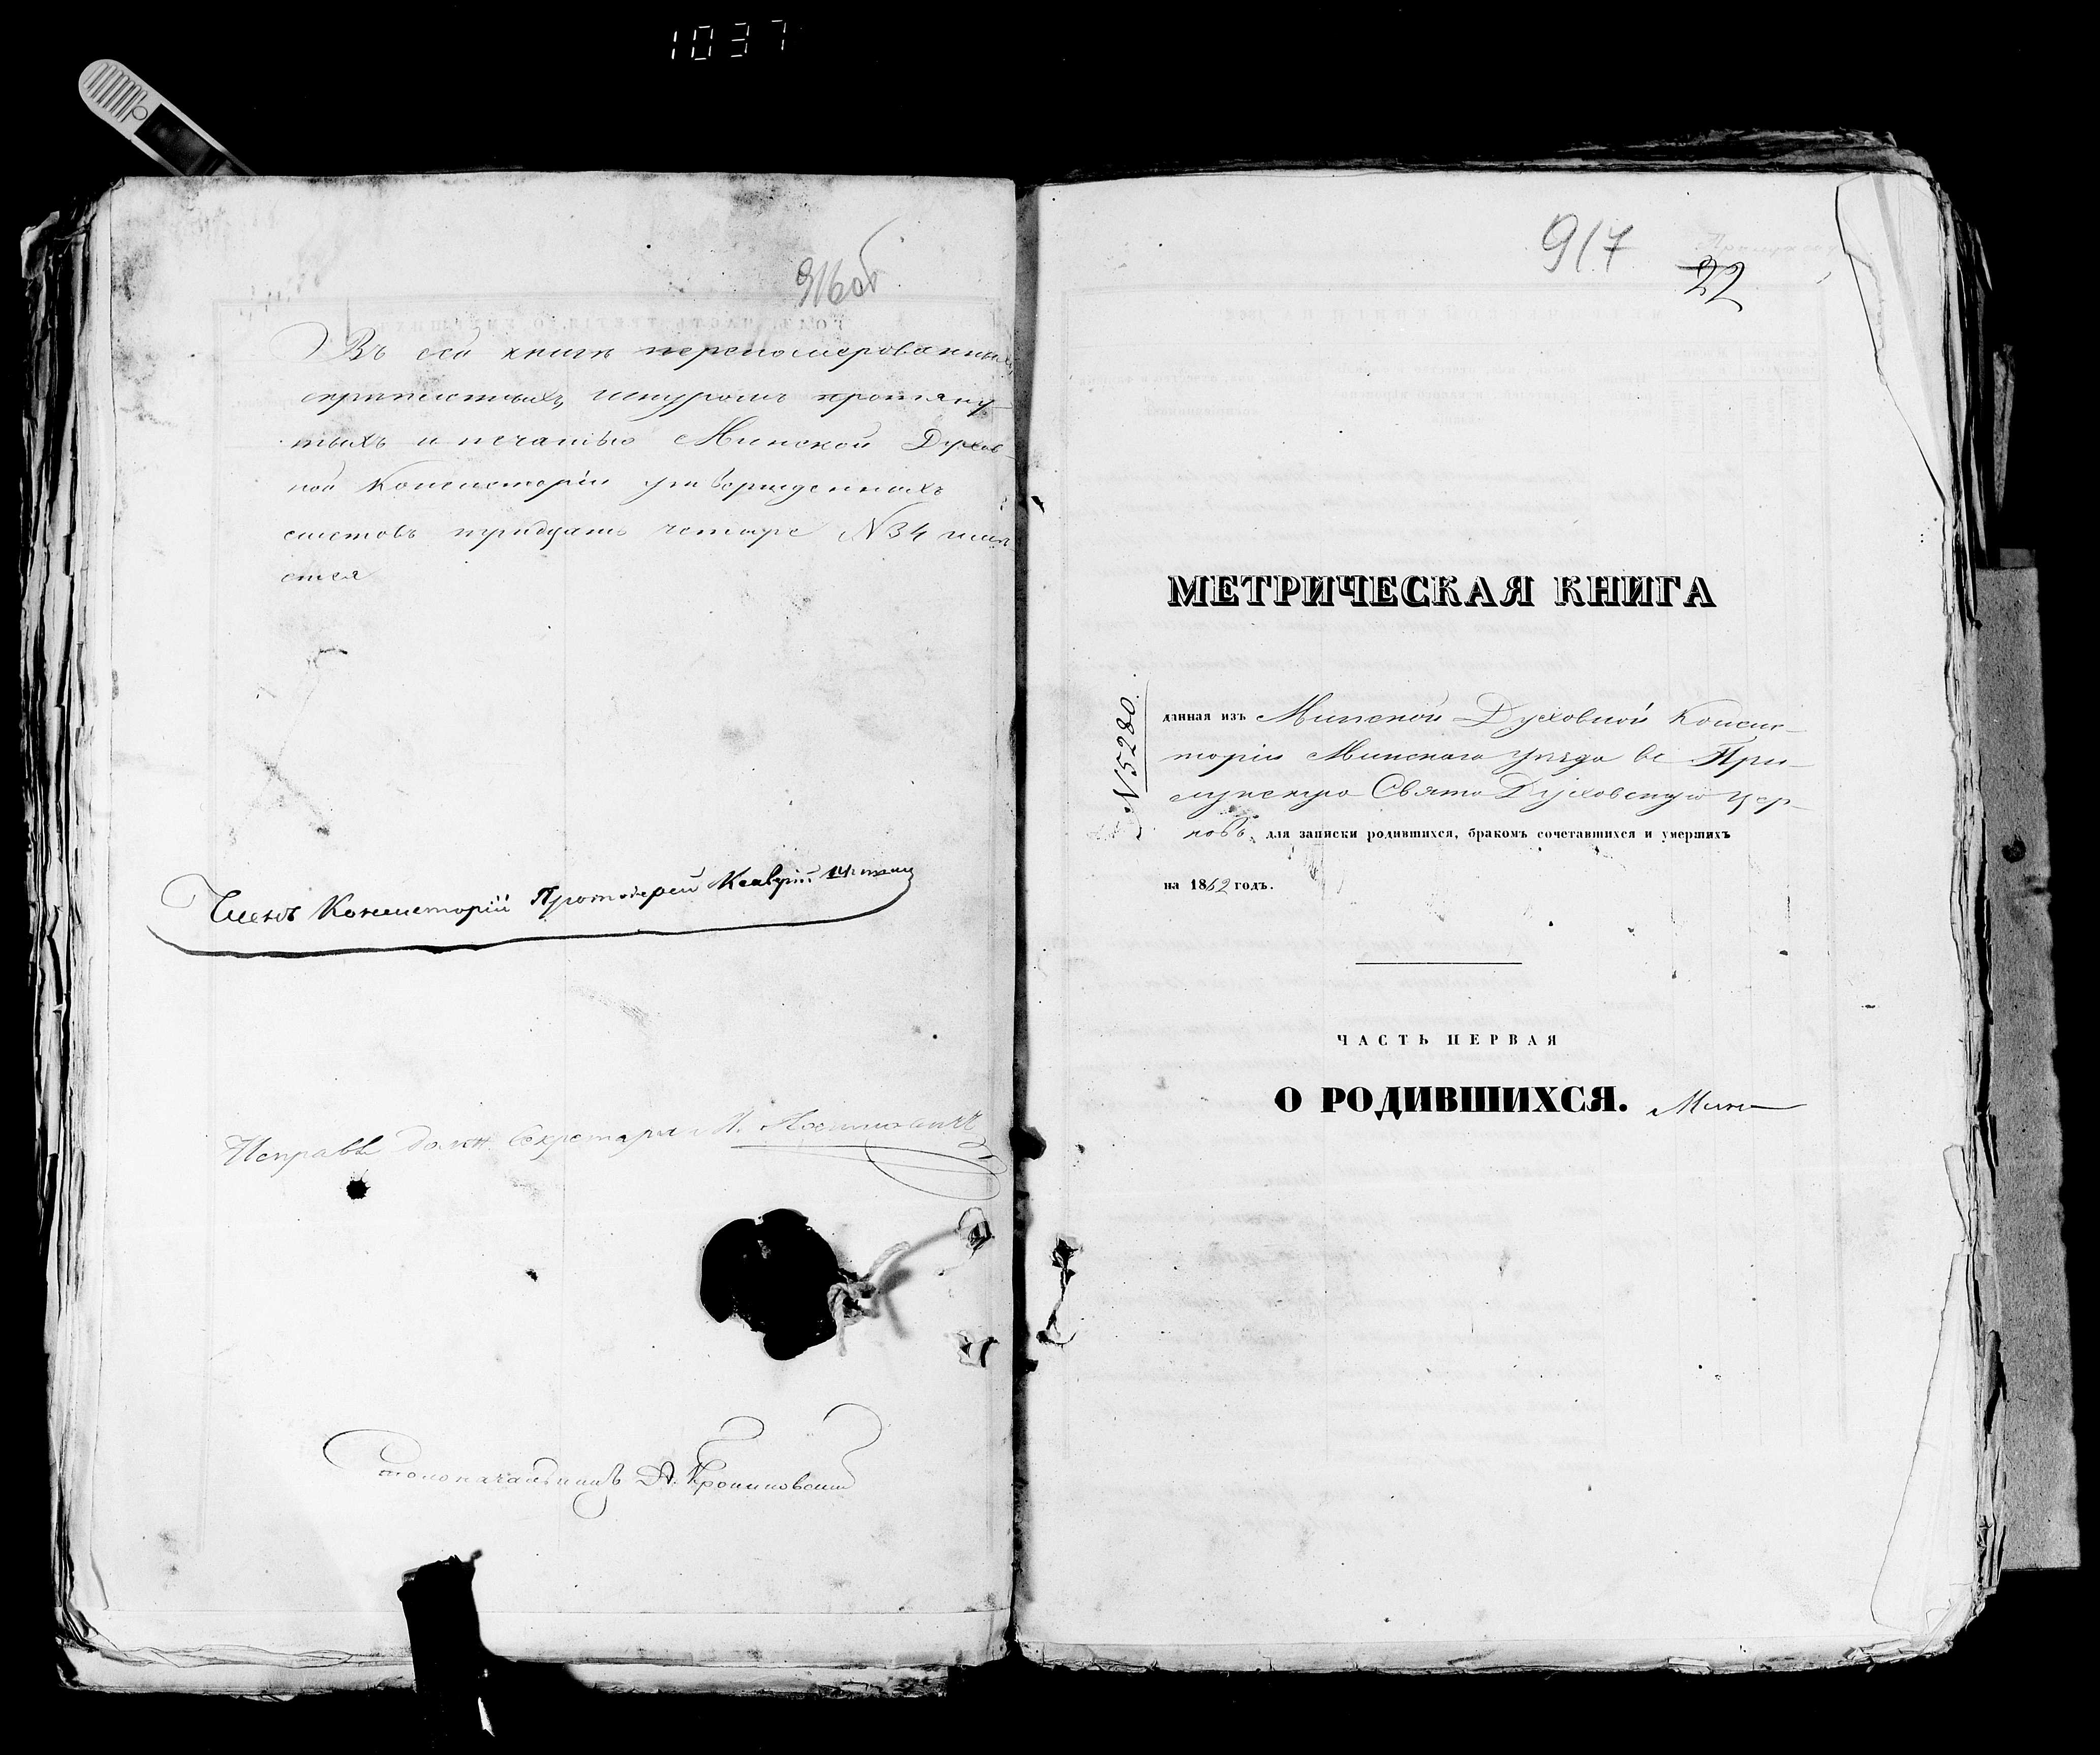 1037
916об
Въ сей книгѣ перенумерованныхъ,
скрепленныхъ, шнуромъ протяну-
тыхъ и печатью Минской Духов-
ной Консисторіи утвержденныхъ
листовъ тридцать четыре №34 числи-
тся
Членъ Консисторіи Протоіерей
Исправл. долж. Секретаря
Столоначальникъ А.
917
22
МЕТРИЧЕСКАЯ КНИГА
№5280.
данная изъ Минской Духовной Консис-
торіи Минскаго уѣзда въ При-
лукскую Свято Духовскую цер-
ковь, для записки родившихся, бракомъ сочетавшихся и умершихъ
на 1862 годъ.
ЧАСТЬ ПЕРВАЯ
О РОДИВШИХСЯ.